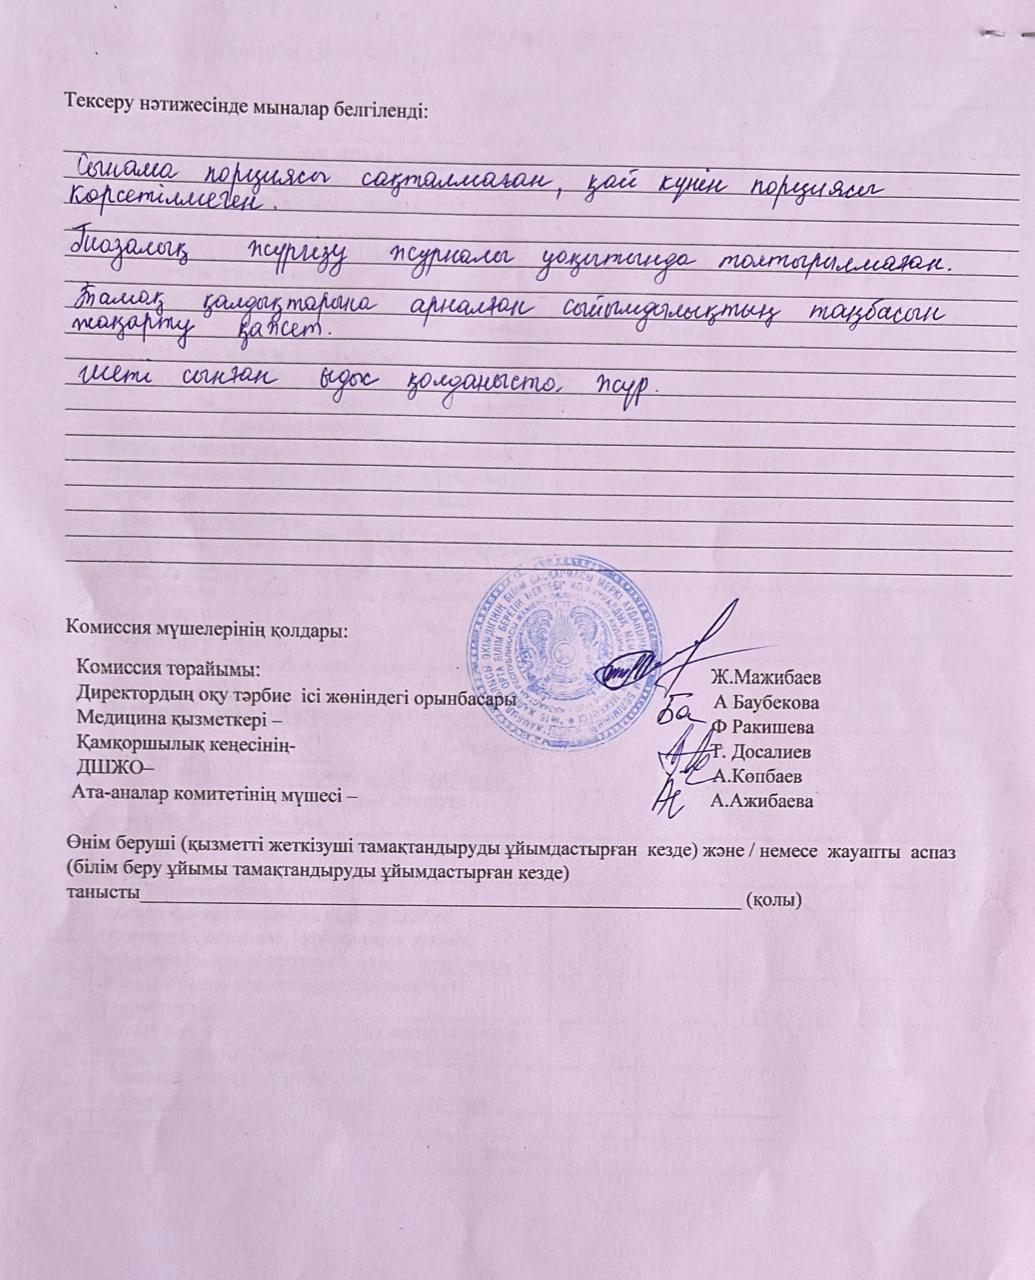 Тексеру нәтижесінде мыналар белгіленді:
Сынама порциясы сақталмаған, қай күнін порциясы
көрсетілмеген.
Тазалық жүргізу журналы уақытында толтырылмаған.
Тамақ қалдықтарына арналған сыйымдылықтың таңбасын
жаңарту қажет.
Шеті сынған ыдыс қолданыста жүр.
Комиссия мүшелерінің қолдары:
Комиссия төрайымы: Ж.Мажибаев
Директордың оқу тәрбие ісі жөніндегі орынбасары А Баубекова
Медицина қызметкері – Ф Ракишева
Қамқоршылық кеңесінің- Т. Досалиев
ДШЖО– А.Көпбаев
Ата-аналар комитетінің мүшесі – А.Ажибаева
Өнім беруші (қызметті жеткізуші тамақтандыруды ұйымдастырған кезде) және / немесе жауапты аспаз
(білім беру ұйымы тамақтандыруды ұйымдастырған кезде)
танысты (қолы)